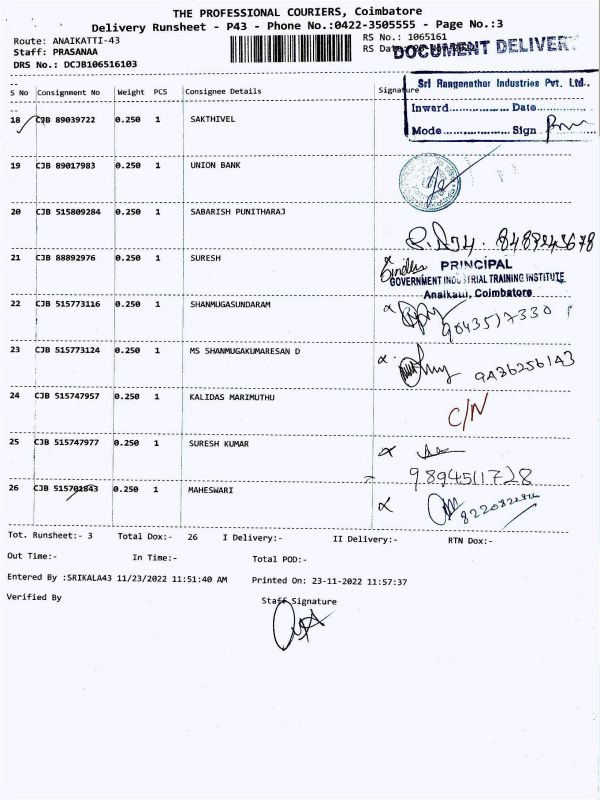 THE PROFESSIONAL COURIERS, Coimbatore
Delivery Runsheet - P43 - Phone No.:0422-3505555 - Page No.:3
Route: ANAIKATTI-43
RS No.: 1065161
Staff: PRASANAA
RS Date
DOCUMENT DELIVERY
DRS No.: DCJB106516103
S No Consignment No Weight PCS Consignee Details Signature
Sri Ranganathar Industries Pvt. Ltd.,
Inward................Date...........
Mode................Sign
18 CJB 89039722 0.250 1 SAKTHIVEL
19 CJB 89017983 0.250 1 UNION BANK
20 CJB 515809284 0.250 1 SABARISH PUNITHARAJ
21 CJB 88892976 0.250 1 SURESH
PRINCIPAL
GOVERNMENT INDUSTRIAL TRAINING INSTITUTE
Anaikatti, Coimbatore
22 CJB 515773116 0.250 1 SHANMUGASUNDARAM
9043517330
23 CJB 515773124 0.250 1 MS SHANMUGAKUMARESAN D
9436256143
24 CJB 515747957 0.250 1 KALIDAS MARIMUTHU
C/N
25 CJB 515747977 0.250 1 SURESH KUMAR
9894511728
26 CJB 515701843 0.250 1 MAHESWARI
Tot. Runsheet:- 3 Total Dox:- 26 I Delivery:- II Delivery:- RTN Dox:-
Out Time:- In Time:- Total POD:-
Entered By :SRIKALA43 11/23/2022 11:51:40 AM Printed On: 23-11-2022 11:57:37
Verified By Staff Signature